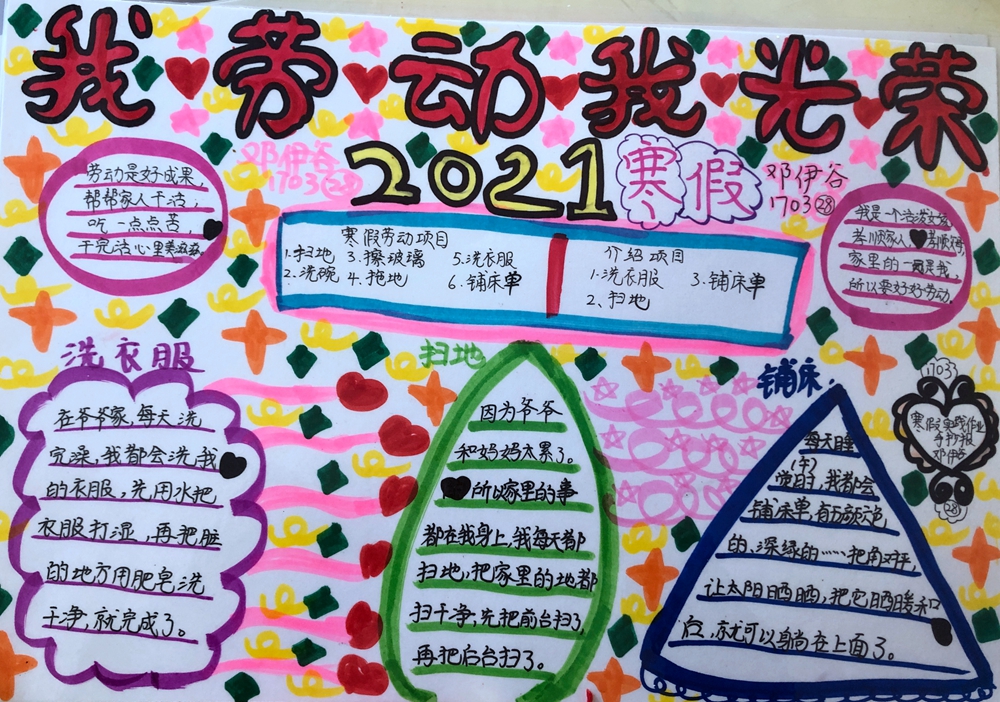 我劳动我光荣
2021寒假
邓伊谷
1703㉘
邓伊谷
1703㉘
劳动是好成果,
帮帮家人干活,
吃一点点苦,
干完活心里美滋滋
寒假劳动项目
1.扫地 3.擦玻璃 5.洗衣服
2.洗碗 4.拖地 6.铺床单
介绍项目
1.洗衣服 3.铺床单
2.扫地
我是一个活泼女孩
孝顺家人
家里的一员是我,
所以要好好劳动.
洗衣服
在爷爷家,每天洗
完澡,我都会洗我
的衣服,先用水把
衣服打湿,再把脏
的地方用肥皂洗
干净,就完成了。
扫地
因为爷爷
和妈妈太累了。
所以家里的事
都在我身上,我每天都
扫地,把家里的地都
扫干净,先把前台扫了,
再把后台扫了。
铺床
每天睡
(午)
觉时,我都会
铺床单,有
的,深绿的……把角对平,
让太阳晒晒,把它晒暖和
后,就可以躺在上面了。
17033
寒假实践作业
手抄报
邓伊谷
㉘